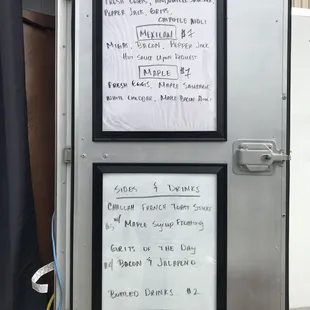 Pepper Jack Grits,
Chipotle Aioli
Mexican $7
Migas, Bacon, Pepper Jack
Hot Sauce Upon Request
Maple $7
Fresh Eggs, Maple Sausage
White Cheddar, Maple Bacon Aioli
Sides & Drinks
Challah French Toast Sticks
w/ Maple Syrup Frosting
Grits of the Day
w/ Bacon & Jalapeño
Bottled Drinks $2